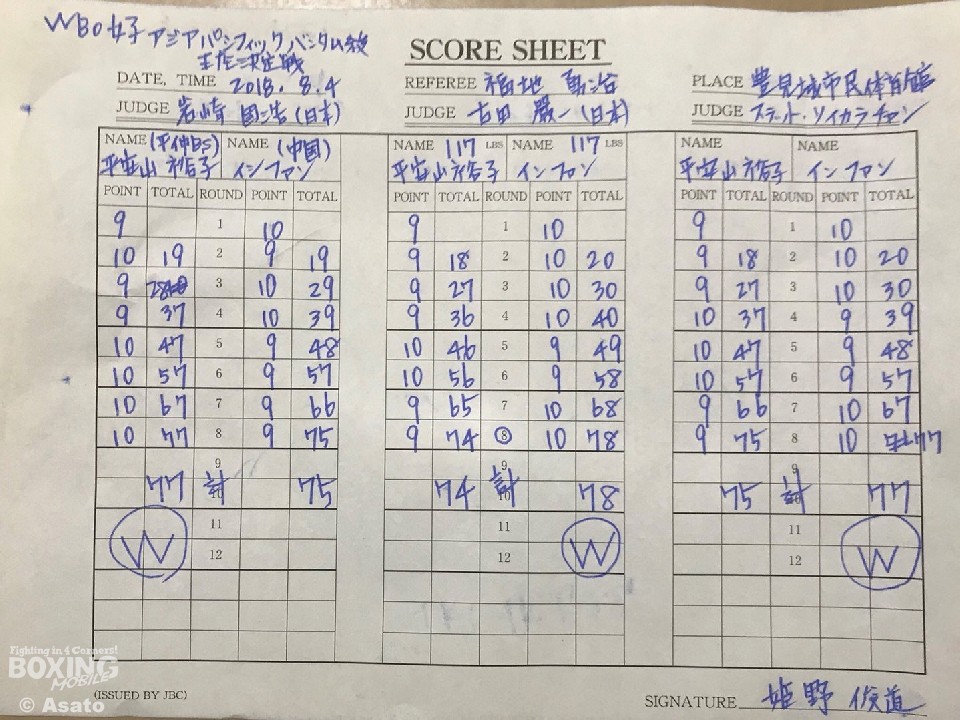 WBO女子アジアパシフィックバンタム級
王座決定戦
SCORE SHEET
DATE, TIME 2018. 8. 4
REFEREE 福地 勇治
PLACE 豊見城市民体育館
JUDGE 岩崎 国浩 (日本)
JUDGE 古田 厳一 (日本)
JUDGE スラット・ソイカラチャン
NAME (平仲BS) NAME (中国) NAME 117 LBS NAME 117 LBS NAME NAME
平安山裕子 インファン 平安山裕子 インファン 平安山裕子 インファン
POINT TOTAL ROUND POINT TOTAL POINT TOTAL ROUND POINT TOTAL POINT TOTAL ROUND POINT TOTAL
9 1 10 9 1 10 9 1 10
10 19 2 9 19 9 18 2 10 20 9 18 2 10 20
9 28 3 10 29 9 27 3 10 30 9 27 3 10 30
9 37 4 10 39 9 36 4 10 40 10 37 4 9 39
10 47 5 9 48 10 46 5 9 49 10 47 5 9 48
10 57 6 9 57 10 56 6 9 58 10 57 6 9 57
10 67 7 9 66 9 65 7 10 68 9 66 7 10 67
10 77 8 9 75 9 74 8 10 78 9 75 8 10 77
9 9 9
77 計 75 74 計 10 78 75 計 77
11 11 11
W 12 12 W 12 W
Fighting in 4 Corners!
BOXING
MOBILE
(ISSUED BY JBC)
SIGNATURE 姫野 俊道
© Asato